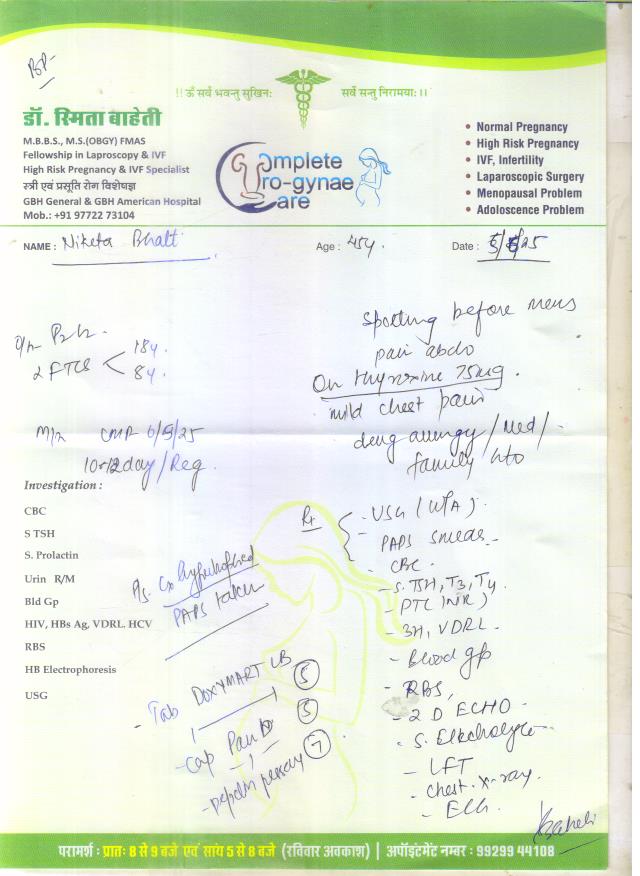 BP-
!!ॐ सर्वे भवन्तु सुखिनः सर्वे सन्तु निरामयाः।।
डॉ. स्मिता बाहेती
M.B.B.S., M.S.(OBGY) FMAS
Fellowship in Laproscopy & IVF
High Risk Pregnancy & IVF Specialist
स्त्री एवं प्रसूति रोग विशेषज्ञ
GBH General & GBH American Hospital
Mob.: +91 97722 73104
Complete
Uro-gynae
Care
• Normal Pregnancy
• High Risk Pregnancy
• IVF, Infertility
• Laparoscopic Surgery
• Menopausal Problem
• Adoloscence Problem
NAME : Niketa Bhatt Age : 45y. Date : 5/ /25
Spotting before mens
pain abdo
On thyroxine 75mg.
mild chest pain
drug allergy / Med /
family h/o
O/H P2L2.
2 FTCS < 18y.
8y.
M/H LMP 6/5/25
10-12day / Reg
Investigation :
CBC
S TSH
S. Prolactin
Urin R/M
Bld Gp
HIV, HBs Ag, VDRL. HCV
RBS
HB Electrophoresis
USG
P/s. Cx hypertrophied
PAPS taken
Rx
- USG (W/A).
- PAPS smear
- CBC
- S. TSH, T3, T4
- PTC INR)
- 3H, VDRL
- Blood gp
- RBS,
- 2 D ECHO
- S. Electrolyte
- LFT
- Chest. X-ray.
- ECG.
- Tab DOXYMART LB 5
- Cap Pan D 5
- pessary 7
परामर्श : प्रातः 8 से 9 बजे एवं सांय 5 से 8 बजे (रविवार अवकाश) | अपॉइंटमेंट नम्बर : 99299 44108